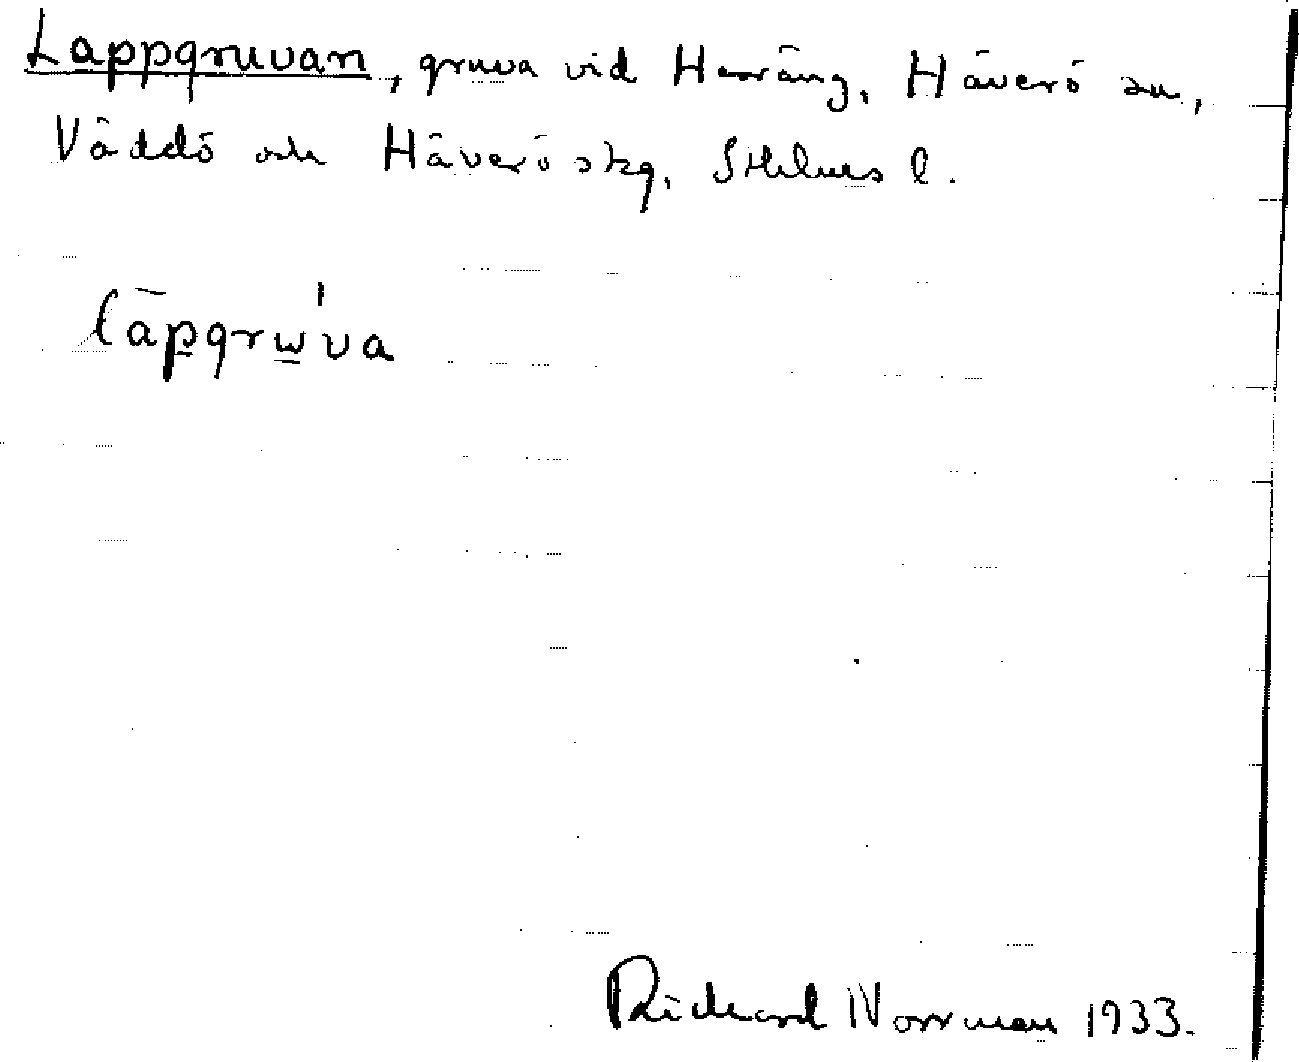 Lappgruvan, gruva vid Herräng, Häverö sn,
Väddö och Häverö skg, Sthlms l.
lāpgrw̲'va
Rickard Norrman 1933.